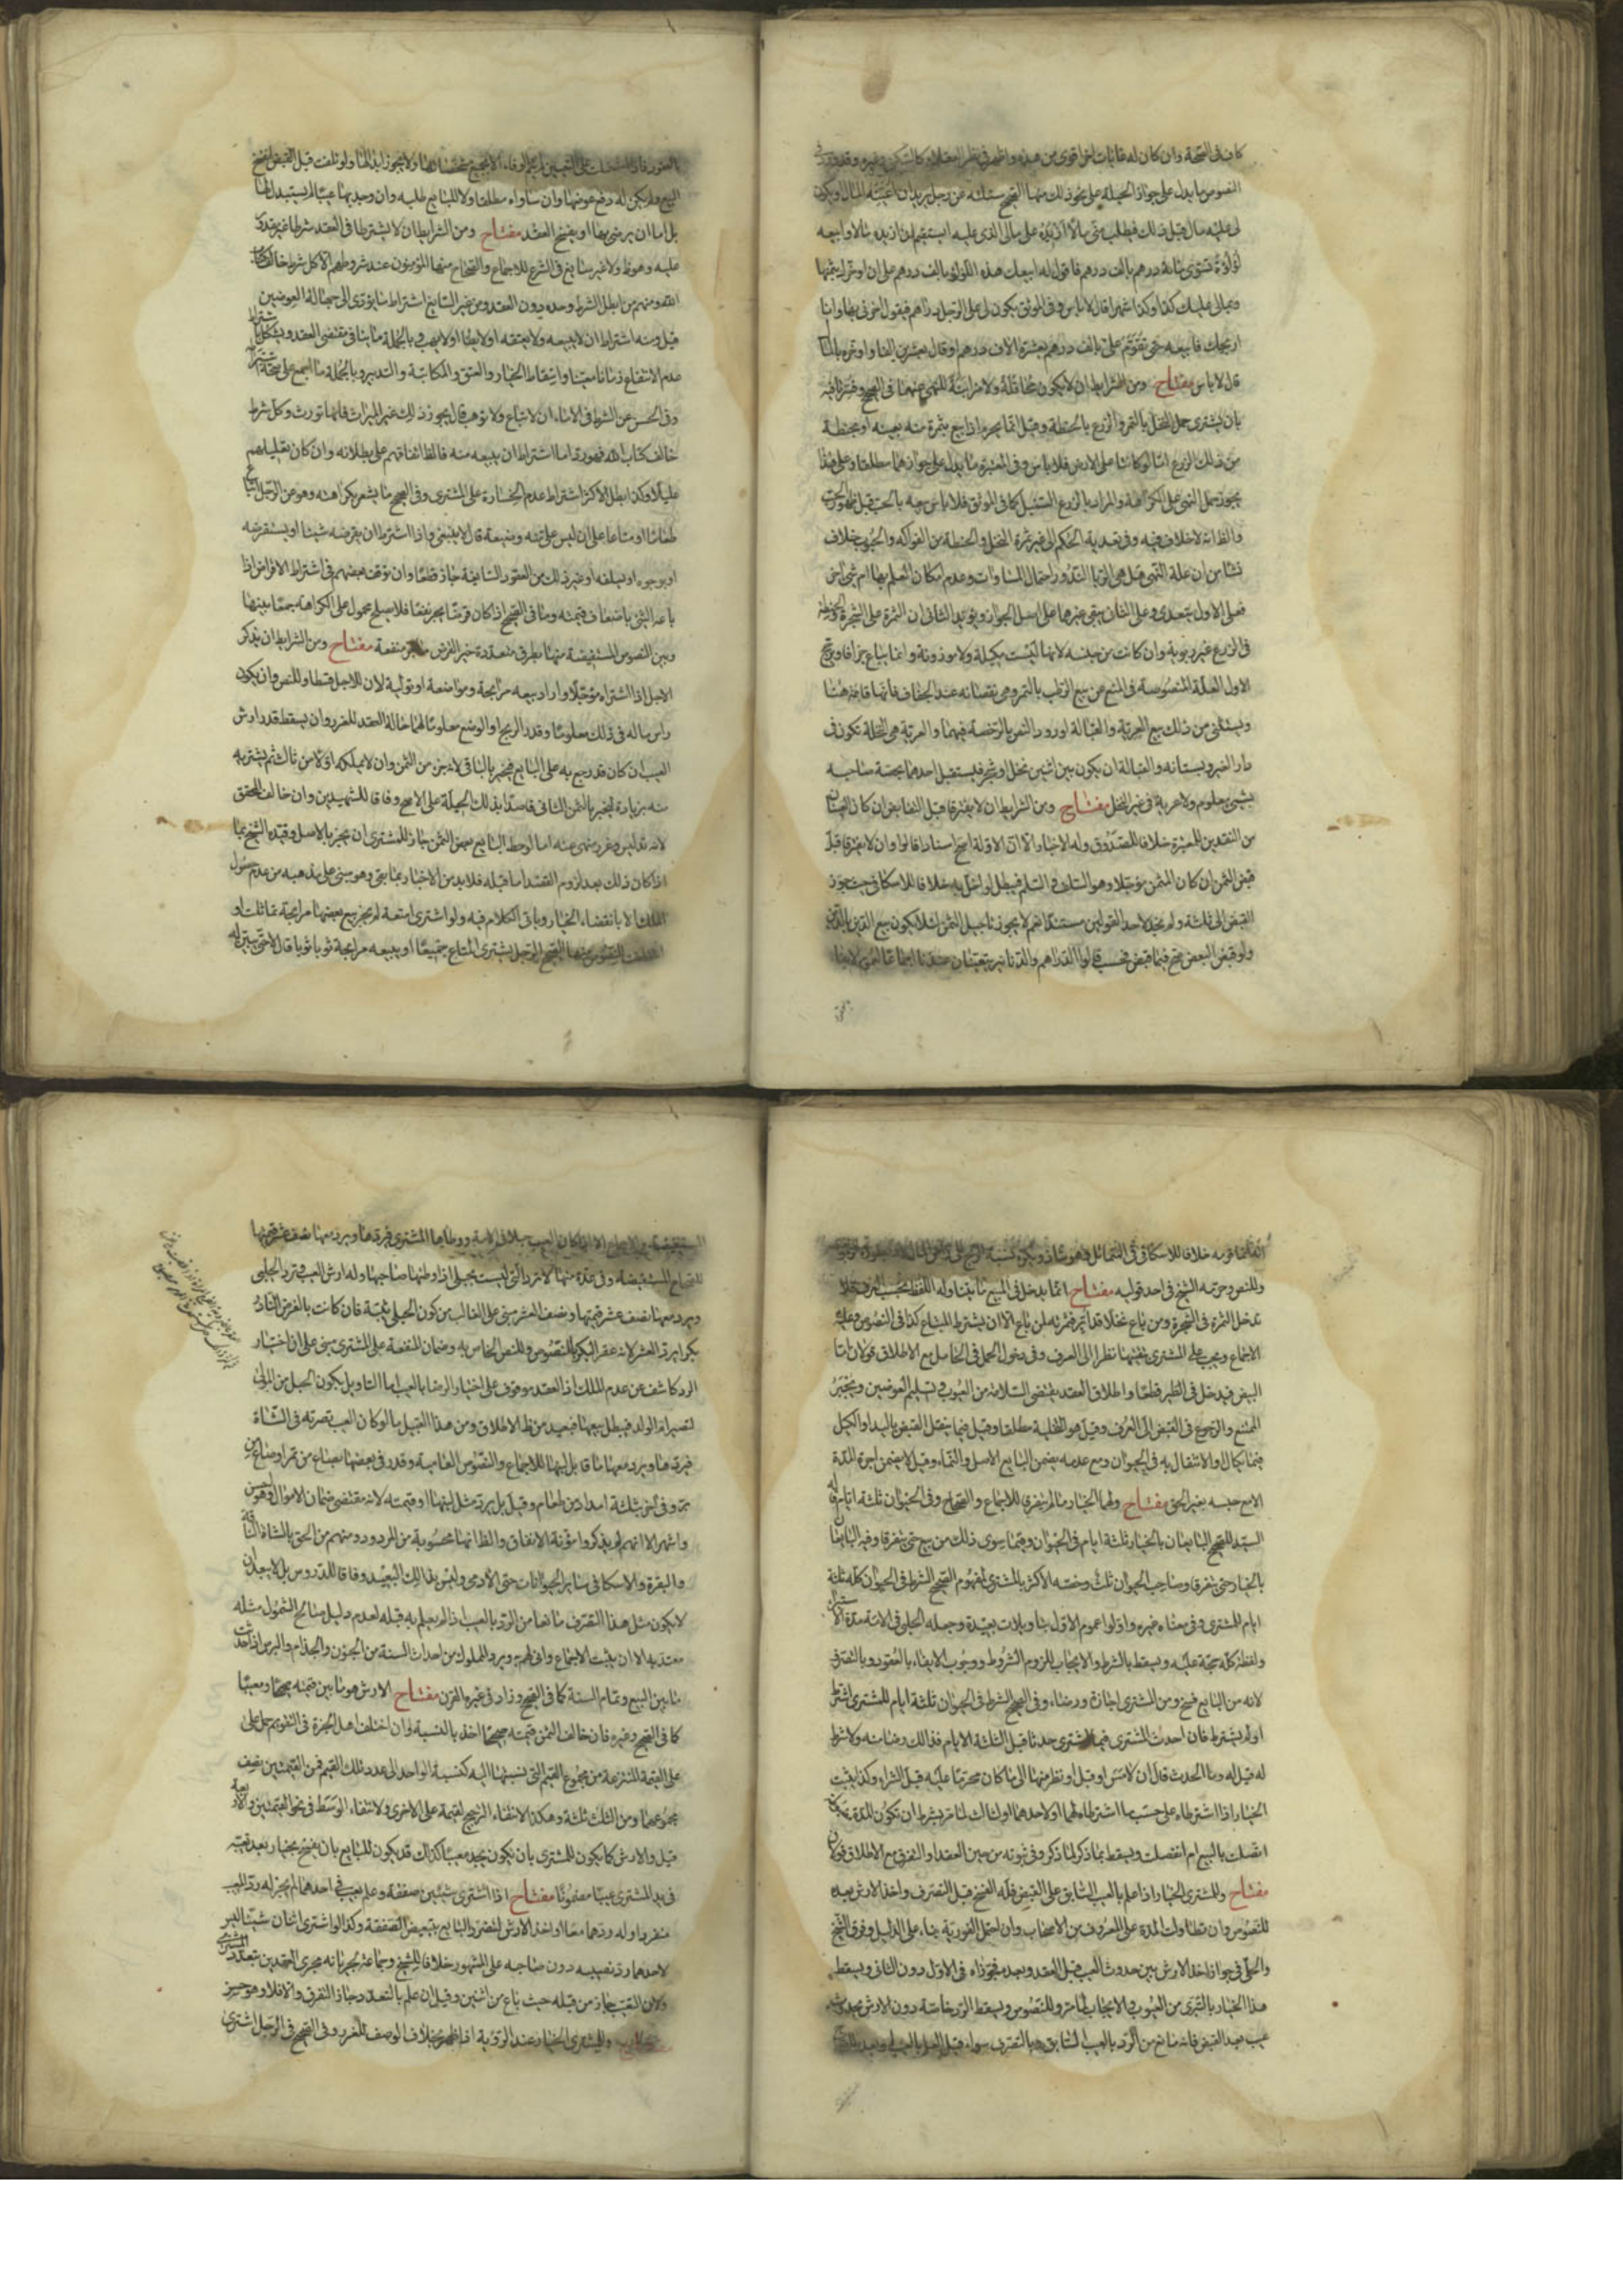 كاف في الصحة وان كان له غايات اخر اقوى من هذه واظهر في نظر العقلاء كالتسكين وغيره وقد ورد في
النصوص ما يدل على جواز الحيلة على نحو ذلك منها الصحيح سئلته عن رجل يريد ان اعينه المال او يكون
لى عليه مال قبل ذلك فيطلب منى مالا ازيده على مالى الذى عليه ايستقيم ان ازيده مالا وابيعه
لؤلؤة تسوى مائة درهم بالف درهم فاقول له ابيعك هذه اللؤلؤة بالف درهم على ان اؤخرك بثمنها
وبمالى عليك كذا وكذا شهرا قال لا باس وفي الموثق يكون لى على الرجل دراهم فيقول اخرنى بها وانا
اربحك فابيعه جبة تقوم على بالف درهم بعشرة الاف درهم او قال بعشرين الفا واؤخره بالمال
قال لا باس مفتاح ومن الشرايط ان لا يكون محاقلة ولا مزابنة للنهى عنهما في الصحيح وفسرتا فيه
بان يشترى حمل النخل بالتمر والزرع بالحنطة وقيل انما يحرم اذا بيع بثمرة منه بعينه او بحنطة
من ذلك الزرع اما لو كانتا على الارض فلا باس وفي المعتبرة ما يدل على جوازهما مطلقا وعلى هذا
يجوز حمل النهى على الكراهة والمراد بالزرع السنبل كما في الموثق فلا باس ببيعه بالحب قبل ظهور الحب
والظ انه لا خلاف فيه وفي تعدية الحكم الى غير ثمرة النخل والحنطة من الفواكه والحبوب خلاف
نشا من ان علة النهى هل هى الربا لندور احتمال المساوات وعدم امكان العلم بها ام شئ اخر
فعلى الاول يتعدى وعلى الثانى يبقى غيرها على اصل الجواز ويؤيد الثانى ان الثمرة على الشجرة والحنطة
في الزرع غير ربوية وان كانت من جنسه لانها ليست مكيلة ولا موزونة وانما يباع جزافا ويرجح
الاول العلة المنصوصة في المنع من بيع الرطب بالتمر وهى نقصانه عند الجفاف فانها قائمة هنا
ويستثنى من ذلك بيع العرية والقبالة لورود النص بالرخصة فيهما والعرية هى النخلة تكون في
دار الغير وبستانه والقبالة ان يكون بين اثنين نخل او شجر فيستقبل احدهما بحصة صاحبه
بشئ معلوم ولا عرية في غير النخل مفتاح ومن الشرايط ان لا يفترقا قبل التقابض ان كان العوضان
من النقدين للمعتبرة خلافا للصدوق وله الاخبار الا ان الاولة اصح اسنادا قالوا وان لا يفترقا قبل
قبض الثمن ان كان المثمن مؤجلا وهو السلف والسلم فيبطل لو اخل به خلافا للاسكافى حيث جوز
القبض الى ثلثة ولم نجد لاحد القولين مستندا نعم لا يجوز تاجيل الثمن لئلا يكون بيع الدين بالدين
ولو قبض البعض صح فيما قبض فحسب قالوا الدراهم والدنانير يتعينان عندنا
بالعقود فاذا اشتملت على التعيين لم يتم الوفاء الا بجميع مشخصاتها ولا يجوز ابدالها ولو تلفت قبل القبض انفسخ
البيع ولم يكن له دفع عوضها وان ساواه مطلقا ولا للبايع طلبه وان وجد بها عيبا لم يستبدلها
بل اما ان يرضى بها او يفسخ العقد مفتاح ومن الشرايط ان لا يشترطا في العقد شرطا غير مقدور
عليه وهو ظ ولا غير سائغ في الشرع للاجماع والصحاح منها المؤمنون عند شروطهم الا كل شرط خالف كتاب
الله ومنهم من ابطل الشرط وحده دون العقد ومن غير السائغ اشتراط ما يؤدى الى جهالة العوضين
قيل ومنه اشتراط ان لا يبيعه ولا يعتقه او لا يطا او لا يهب وبالجملة ما ينافى مقتضى العقد ويشكل باشتراط
عدم الانتفاع زمانا معينا واسقاط الخيار والعتق والمكاتبة والتدبير وبالجملة ما اجمع على صحة اشتراطه
وفي الحسن عن الشرط في الاماء ان لا تباع ولا توهب قال يجوز ذلك غير الميراث فانها تورث وكل شرط
خالف كتاب الله فهو رد اما اشتراط ان يبيعه منه فالظ اتفاقهم على بطلانه وان كان تعليلهم
عليلا وكذا ابطل الاكثر اشتراط عدم الخسارة على المشترى وفي الصحيح ما يشعر بكراهته وهو عن الرجل ابتاع
طعاما او متاعا على ان ليس على منه وضيعة قال لا ينبغى واذا اشترط ان يقرضه شيئا او يستقرضه
او يوجره او يسلفه او غير ذلك من العقود السائغة جاز قطعا وان توقف بعضهم في اشتراط الاقراض اذا
باعه الشئ باضعاف قيمته وما في الصحيح اذا كان قرضا يجر نفعا فلا يصلح محمول على الكراهة جمعا بينها
وبين النصوص المستفيضة منها بطرق متعددة خير القرض ما جر منفعة مفتاح ومن الشرايط ان يذكر
الاجل اذا اشتراه مؤجلا واراد بيعه مرابحة ومواضعة او تولية لان للاجل قسطا وللنص وان يكون
راس ماله في ذلك معلوما وقدر الربح او الوضع معلوما لهما حالة العقد للغرر وان يسقط قدر ارش
العيب ان كان قد رجع به على البايع فيخبر بالباقى لانه جزء من الثمن وان لا يملكه اولا من ثالث ثم يشتريه
منه بزيادة ليخبر بالثمن الثانى قاصدا بذلك الحيلة على الاصح وفاقا للشهيدين وان خالف المحقق
لانه تدليس وغرر منهى عنه اما لو حط البايع بعض الثمن جاز للمشترى ان يخبر بالاصل وقيده الشيخ بما
اذا كان ذلك بعد لزوم العقد اما قبله فلا بد من الاخبار بما بقى وهو مبنى على مذهبه من عدم حصول
الملك الا بانقضاء الخيار وياتى الكلام فيه ولو اشترى امتعة لم يجز بيع بعضها مرابحة تماثلت او
اختلفت للنصوص منها الصحيح الرجل يشترى المتاع جميعا او يبيعه مرابحة ثوبا ثوبا قال لا حتى يبين له
وللنص وحرمه الشيخ في احد قوليه مفتاح انما يدخل في المبيع ما يتناوله اللفظ بحسب العرف فلا
تدخل الثمرة في الشجرة ومن باع نخلا قد ابر فثمرته لمن باع الا ان يشترط المبتاع كذا في النصوص وعليه
الاجماع ويجب على المشترى تبقيتها نظرا الى العرف وفي دخول الحمل في الحامل مع الاطلاق قولان اما
البيض فيدخل في الطير قطعا واطلاق العقد يقتضى السلامة من العيوب وتسليم العوضين ويجبر
الممتنع والرجوع في القبض الى العرف وقيل هو التخلية مطلقا وقيل فيما ينقل القبض باليد او الكيل
فيما يكال والانتقال به في الحيوان ومع عدمه يضمن البايع الاصل والنماء وقيل لا يضمن اجرة المدة
الا مع حبسه بغير الحق مفتاح ولهما الخيار ما لم يتفرقا للاجماع والصحاح وفي الحيوان ثلثة ايام وفاقا
السيد للصحيح البايعان بالخيار ثلثة ايام في الحيوان وفيما سوى ذلك من بيع حتى يتفرقا وفيه البايعان
بالخيار حتى يتفرقا وصاحب الحيوان ثلث وخصه الاكثر بالمشترى لمفهوم الصحيح الشرط في الحيوان كله ثلثة
ايام للمشترى وفي معناه غيره واولوا عموم الاول بتاويلات بعيدة وجعله الحلبى في الامة مدة الاستبراء
ولفظة كله حجة عليه ويسقط بالشرط والايجاب للزوم الشروط ووجوب الايفاء بالعقود وبالتصرف
لانه من البايع فسخ ومن المشترى اجازة ورضاء وفي الصحيح الشرط في الحيوان ثلثة ايام للمشترى اشترط
او لم يشترط فان احدث المشترى فيما اشترى حدثا قبل الثلثة الايام فذلك رضا منه ولا شرط
له قيل له وما الحدث قال ان لامس او قبل او نظر منها الى ما كان محرما عليه قبل الشراء وكذا يثبت
الخيار اذا اشترطاه على حسب ما اشترطاه لهما او لاحدهما او لثالث لما مر بشرط ان تكون المدة مقدرة
اتصلت بالبيع ام انفصلت ويسقط بما ذكر لما ذكر وفي ثبوته من حين العقد او التفرق مع الاطلاق قولان
مفتاح وللمشترى الخيار اذا علم بالعيب السابق على القبض فله الفسخ قبل التصرف واخذ الارش بعده
للنصوص وان تطاولت المدة على المعروف من الاصحاب وان احتمل الفورية بناء على الدليل وفرق الشيخ
والحلى في جواز اخذ الارش بين حدوث العيب قبل العقد وبعده فجوزاه في الاول دون الثانى ويسقط
هذا الخيار بالتبرى من العيوب والايجاب لما مر وللنصوص ويسقط الرد خاصة دون الارش بحدوث
عيب بعد القبض فانه مانع من الرد بالعيب السابق وبالتصرف سواء قبل العلم بالعيب او بعده
الا اذا كان العيب حملا في الامة ووطأها المشترى فيردها ويرد معها نصف عشر قيمتها
للصحاح المستفيضة وفي عدة منها لا ترد التى ليست بحبلى اذا وطئها صاحبها وله ارش العيب وترد الحبلى
ويرد معها نصف عشر قيمتها ونصف العشر مبنى على الغالب من كون الحبلى ثيبة فان كانت بالفرض النادر
بكرا يرد العشر لانه عقر البكر للنصوص وللنص الخاص به وضمان المنفعة على المشترى مبنى على ان اختيار
الرد كاشف عن عدم الملك اذ العقد موقوف على اختيار الرضا بالعيب اما التاويل بكون الحبل من المولى
لتصير ام الولد فيبطل بيعها فبعيد من ظ الاطلاق ومن هذا القبيل ما لو كان العيب تصرية في الشاة
فيردها ويرد معها ما قابل لبنها للاجماع والنصوص العامية وقدر في بعضها بصاع من تمر او صاع من
بر وفي اخر بثلثة امداد من طعام وقيل بل يرد مثل لبنها او قيمته لانه مقتضى ضمان الاموال وهو حسن
واشهر الا انهم لم يذكروا مؤنة الانفاق والظ انها محسوبة من المردود ومنهم من الحق بالشاة الناقة
والبقرة والاسكافى سائر الحيوانات حتى الآدمى وليس بذلك البعيد وفاقا للدروس بل لا يبعد ان
لا يكون مثل هذا التصرف مانعا من الرد بالعيب اذا لم يعلم به قبله لعدم دليل صالح لشمول مثله
معتد به الا ان يثبت الاجماع وانى لهم به ويرد المملوك من احداث السنة من الجنون والجذام والبرص اذا حدث
ما بين البيع وتمام السنة كما في الصحيح وزاد في غيره القرن مفتاح الارش هو ما بين قيمته صحيحا ومعيبا
كما في الصحيح وغيره فان خالف الثمن قيمته صحيحا اخذ بالنسبة وان اختلف اهل الخبرة في التقويم حمل على
على القيمة المنتزعة من مجموع القيم التى نسبتها اليه كنسبة الواحد الى عدد تلك القيم فمن القيمتين نصف
مجموعهما ومن الثلث ثلثه وهكذا لانتفاء الترجيح لقيمة على الاخرى ولانتفاء الوسط في نحو القيمتين والاربعة
قيل والارش كما يكون للمشترى بان يكون يجد معيبا كذلك قد يكون للبايع بان يفسخ بخيار بعد تعيبه
في يد المشترى عيبا مضمونا مفتاح اذا اشترى شيئين صفقة وعلم بعيب في احدهما لم يجز له رد المعيب
منفردا وله ردهما معا او اخذ الارش لتضرر البايع بتبعيض الصفقة وكذا لو اشترى اثنان شيئا ليس
لاحدهما رد نصيبه دون صاحبه على المشهور خلافا للشيخ وجماعة لجريانه مجرى العقدين بتعدد المشترى
ولان التبعيض جاء من قبله حيث باع من اثنين وقيل ان علم بالتعدد جاز التفرق والا فلا وهو حسن
مفتاح وللمشترى الخيار عند الرؤية اذا ظهر بخلاف الوصف للغرر وفي الصحيح في الرجل اشترى